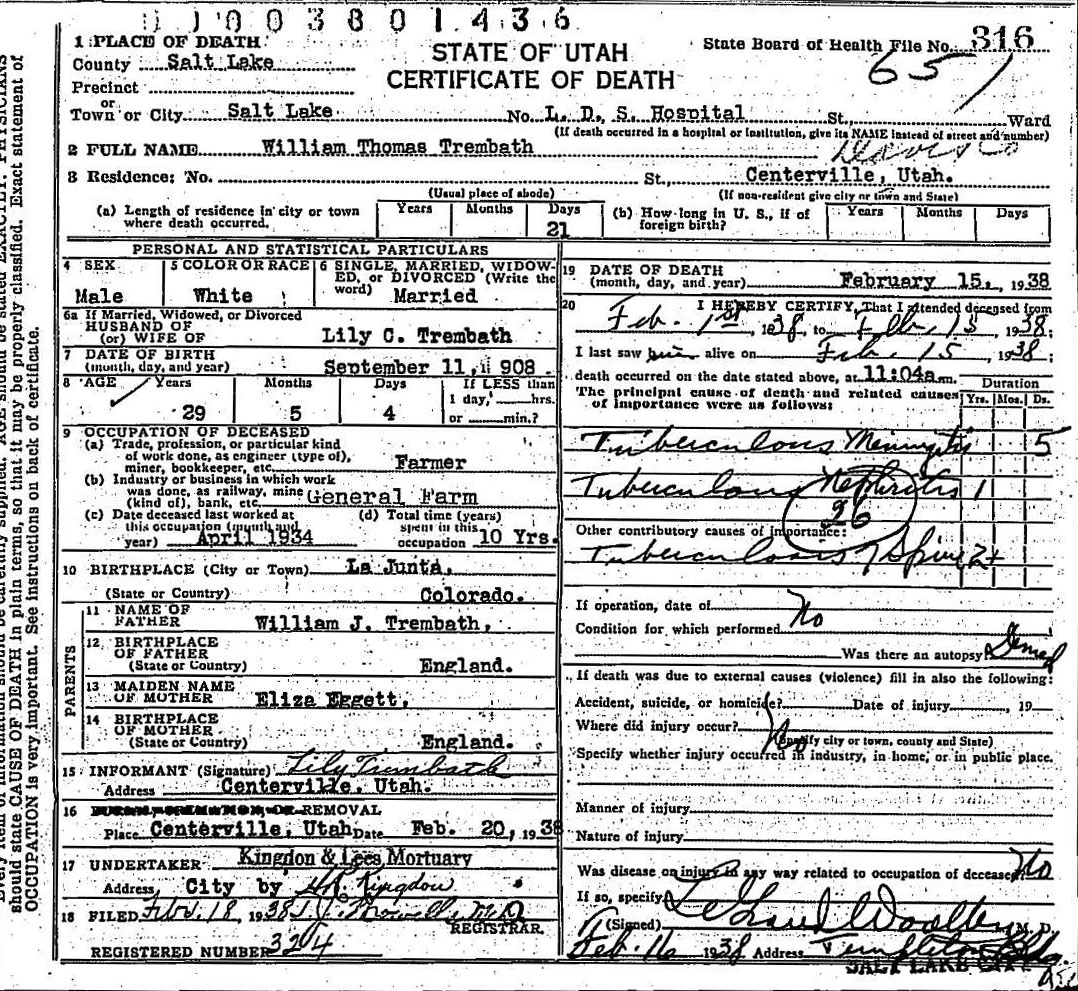 0 1 0 0 3 8 0 1 4 3 6
1 PLACE OF DEATH
STATE OF UTAH
CERTIFICATE OF DEATH
State Board of Health File No. 316
651
County Salt Lake
Precinct
or
Town or City Salt Lake No. L. D. S. Hospital St., Ward
(If death occurred in a hospital or institution, give its NAME instead of street and number)
2 FULL NAME William Thomas Trembath
Davis Co
3 Residence: No. St., Centerville, Utah.
(Usual place of abode) (If non-resident give city or town and State)
(a) Length of residence in city or town where death occurred. Years Months Days 21
(b) How long in U. S., if of foreign birth? Years Months Days
PERSONAL AND STATISTICAL PARTICULARS
4 SEX Male
5 COLOR OR RACE White
6 SINGLE, MARRIED, WIDOWED, or DIVORCED (Write the word) Married
6a If Married, Widowed, or Divorced
HUSBAND OF
(or) WIFE OF Lily C. Trembath
7 DATE OF BIRTH
(month, day, and year) September 11, 1908.
8 AGE Years Months Days If LESS than
1 day, hrs.
29 5 4 or min.?
9 OCCUPATION OF DECEASED
(a) Trade, profession, or particular kind
of work done, as engineer (type of),
miner, bookkeeper, etc. Farmer
(b) Industry or business in which work
was done, as railway, mine
(kind of), bank, etc. General Farm
(c) Date deceased last worked at
this occupation (month and
year) April 1934
(d) Total time (years)
spent in this
occupation 10 Yrs.
10 BIRTHPLACE (City or Town) La Junta,
(State or Country) Colorado.
PARENTS
11 NAME OF
FATHER William J. Trembath,
12 BIRTHPLACE
OF FATHER
(State or Country) England.
13 MAIDEN NAME
OF MOTHER Eliza Eggett,
14 BIRTHPLACE
OF MOTHER
(State or Country) England.
15 INFORMANT (Signature) Lily Trembath
Address Centerville, Utah.
16 BURIAL, CREMATION OR REMOVAL
Place Centerville, Utah Date Feb. 20, 1938
17 UNDERTAKER Kingdon & Lees Mortuary
Address City by H. R. Kingdon
18 FILED Feb. 18, 1938 M D
REGISTRAR.
REGISTERED NUMBER 324
19 DATE OF DEATH
(month, day, and year) February 15, 1938
20 I HEREBY CERTIFY, That I attended deceased from
Feb. 1st, 1938, to Feb. 15, 1938;
I last saw him alive on Feb. 15, 1938;
death occurred on the date stated above, at 11:04a.m.
The principal cause of death and related causes
of importance were as follows:
Duration
Yrs. Mos. Ds.
Tuberculous Meningitis 5
Tuberculous Nephritis 1
26
Other contributory causes of importance:
Tuberculous of Spine 2+
If operation, date of No
Condition for which performed
Was there an autopsy? Denied
If death was due to external causes (violence) fill in also the following:
Accident, suicide, or homicide? Date of injury , 19
Where did injury occur? No
(Specify city or town, county and State)
Specify whether injury occurred in industry, in home, or in public place.
Manner of injury
Nature of injury
Was disease or injury in any way related to occupation of deceased? No
If so, specify
(Signed) LeGrand Woolley, M. D.
Feb. 16 1938 Address Templeton Bldg.
SALT LAKE CITY
should state CAUSE OF DEATH in plain terms, so that it may be properly classified. Exact statement of
OCCUPATION is very important. See instructions on back of certificate.